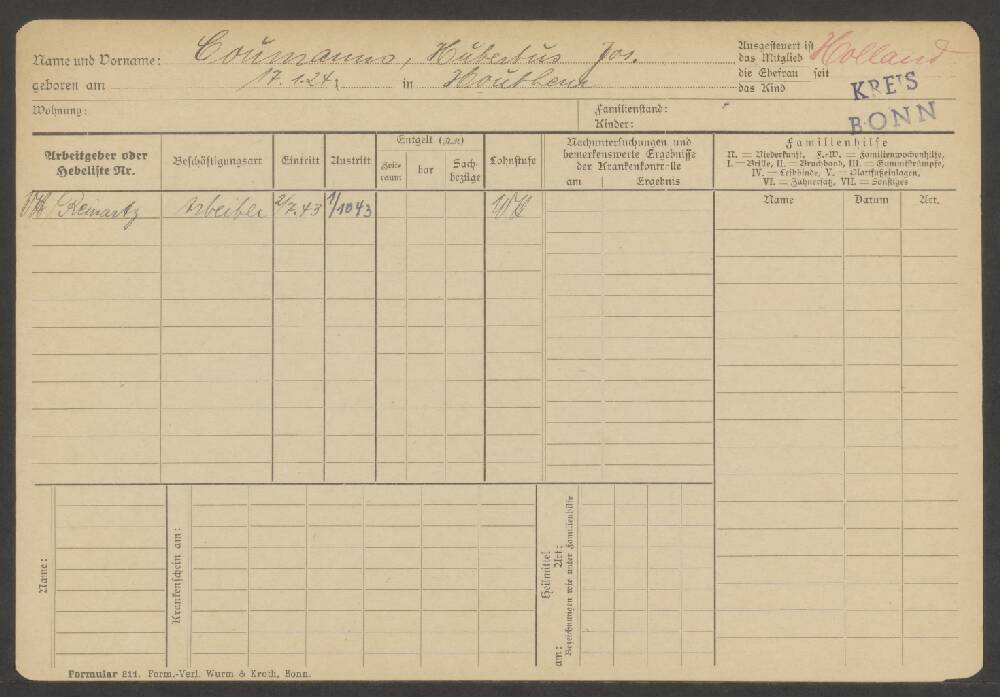 Name und Vorname: Coumanns, Hubertus Jos.
Ausgesteuert ist
das Mitglied
die Ehefrau seit
das Kind
Holland
geboren am 17.1.24 in Houthem
KREIS
BONN
Wohnung:
Familienstand:
Kinder:
Arbeitgeber oder
Hebeliste Nr.
Beschäftigungsart
Eintritt
Austritt
Entgelt (RM)
Zeit-
raum
bar
Sach-
bezüge
Lohnstufe
Nachuntersuchungen und
bemerkenswerte Ergebnisse
der Krankenkontrolle
am
Ergebnis
Familienhilfe
N. = Niederkunft, F.-W. = Familienwochenhilfe,
I. = Brille, II. = Bruchband, III. = Gummistrümpfe,
IV. = Leibbinde, V. = Plattfußeinlagen,
VI. = Zahnersatz, VII. = Sonstiges
Name
Datum
Art.
VH Reinartz Arbeiter 2/7.43 1/1043 VH
Name:
Krankenschein am:
am:
Heilmittel
Art:
Bezeichnungen wie unter Familienhilfe
Formular 211. Form.-Verl. Wurm & Kroth, Bonn.